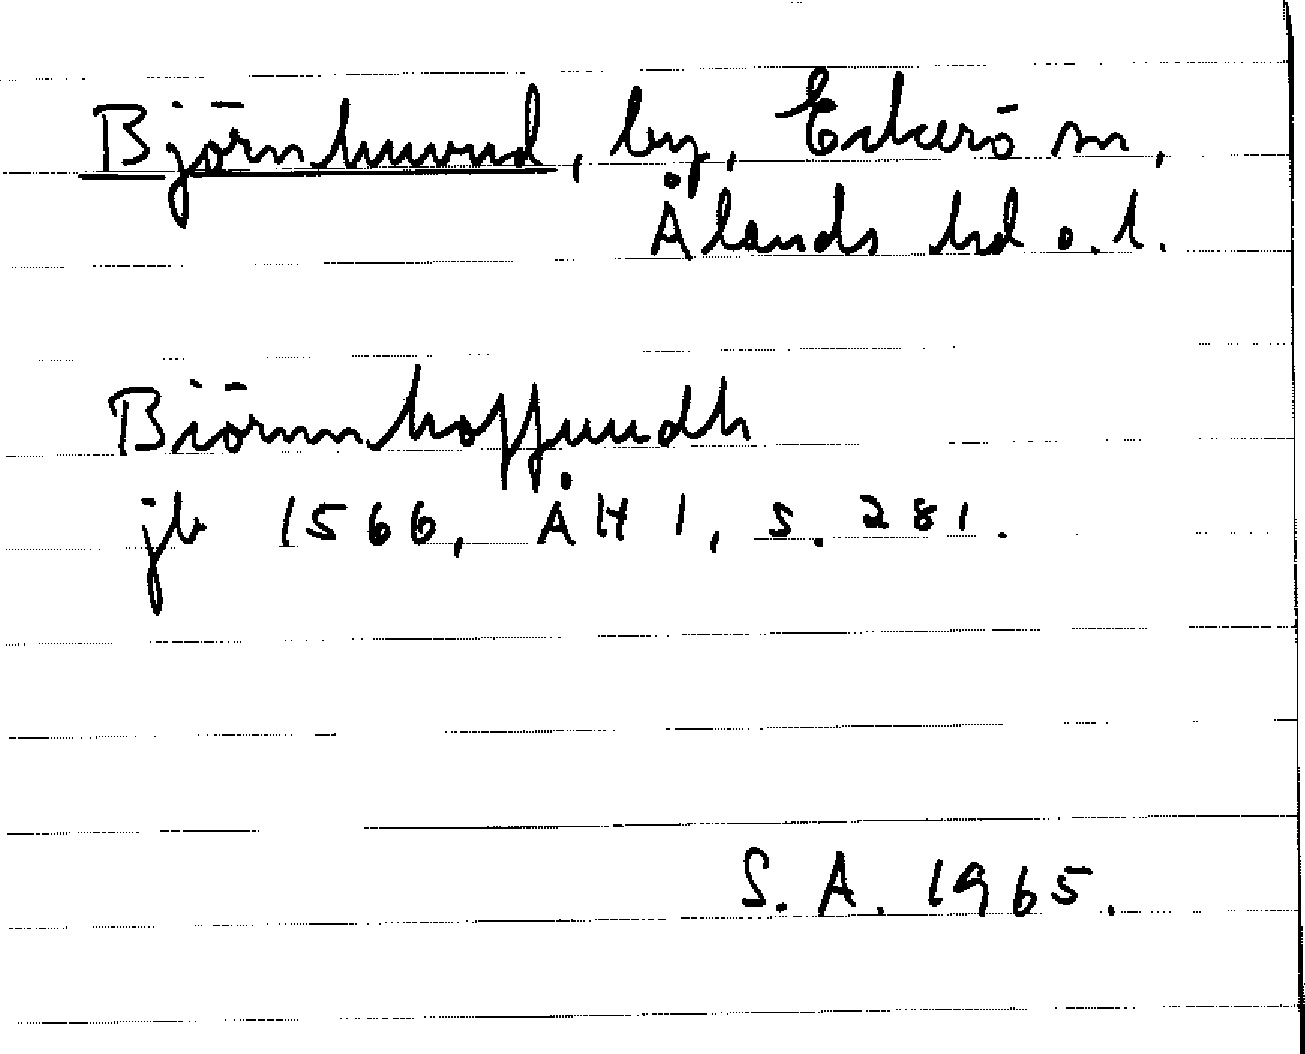 Björnhuvud, by, Eckerö sn,
Ålands hd o. l.
Biörnnhoffuudh
jb 1566, ÅH 1, s. 281.
S. A. 1965.